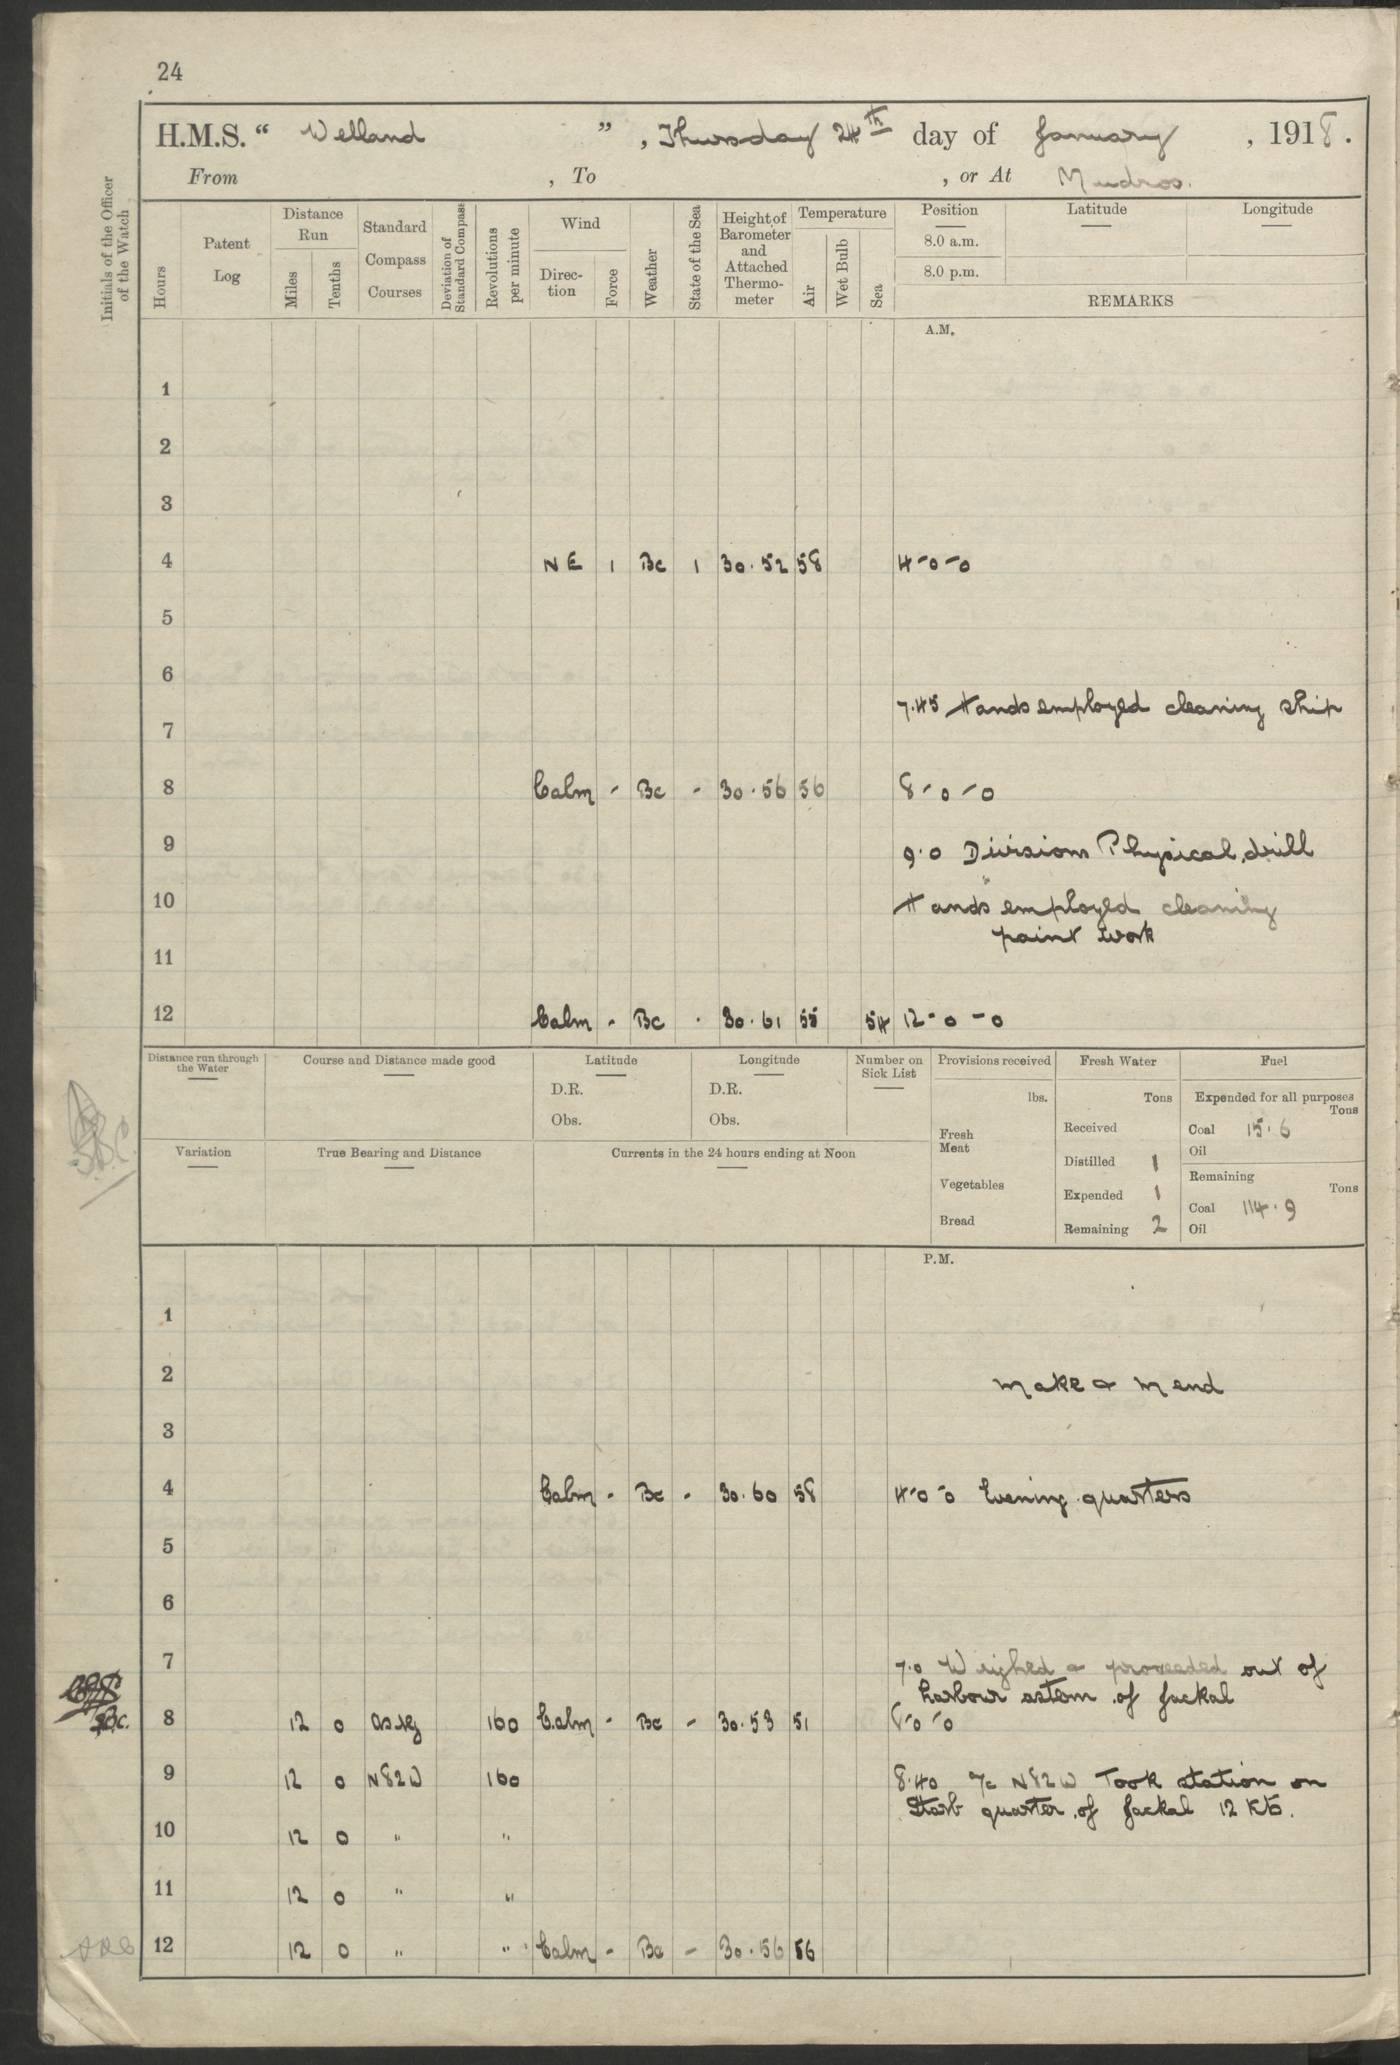 24
H.M.S. “ Welland ” , Thursday 24th day of January , 1918 .
From , To , or At Mudros.
Initials of the Officer of the Watch
Hours
Patent Log
Distance Run
Miles
Tenths
Standard Compass Courses
Deviation of Standard Compass
Revolutions per minute
Wind
Direc-tion
Force
Weather
State of the Sea
Height of Barometer and Attached Thermo-meter
Temperature
Air
Wet Bulb
Sea
Position
8.0 a.m.
8.0 p.m.
Latitude
Longitude
REMARKS
A.M.
1
2
3
4 NE 1 Bc 1 30.52 58 4-0-0
5
6
7.45 Hands employed cleaning ship
7
8 Calm - Bc - 30.56 56 8-0-0
9
9.0 Divisions Physical drill
10 Hands employed cleaning
paint work
11
12 Calm - Bc - 30.61 55 54 12-0-0
Distance run through the Water
Course and Distance made good
Latitude
D.R.
Obs.
Longitude
D.R.
Obs.
Number on Sick List
Provisions received
lbs.
Fresh Meat
Vegetables
Bread
Fresh Water
Tons
Received
Distilled 1
Expended 1
Remaining 2
Fuel
Expended for all purposes
Tons
Coal 15.6
Oil
Remaining
Tons
Coal 114.9
Oil
Variation
True Bearing and Distance
Currents in the 24 hours ending at Noon
P.M.
1
2 Make & Mend
3
4 Calm - Bc - 30.60 58 4-0-0 Evening quarters
5
6
7 7.0 Weighed & proceeded out of
harbour astern of Jackal
8 12 0 as req 160 Calm - Bc - 30.53 51 8-0-0
9 12 0 N82W 160 8.40 A/c N82W Took station on
Starb quarter of Jackal 12 Kts.
10 12 0 " "
11 12 0 " "
12 12 0 " " Calm - Bc - 30.56 56